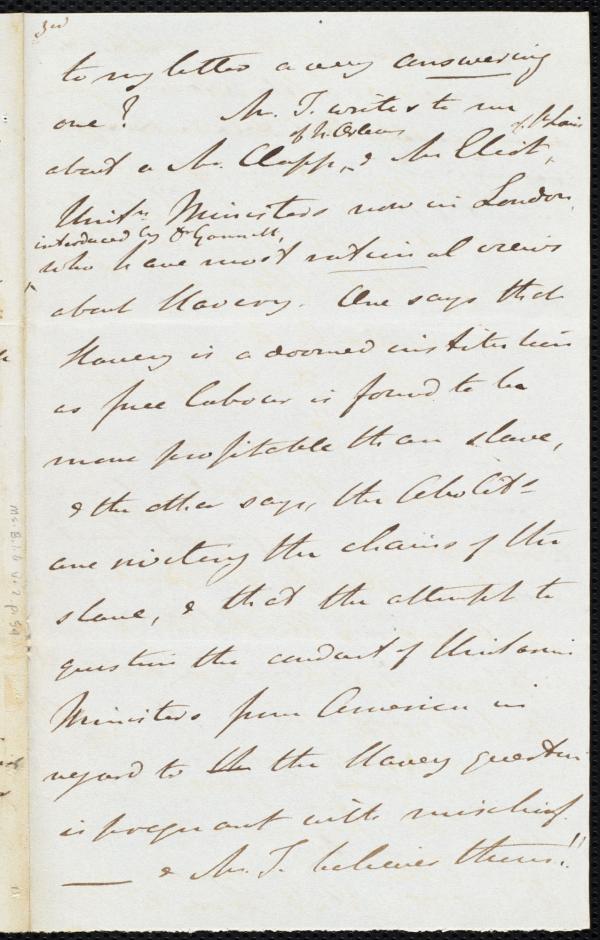 3rd
to my letter a very answering
one? Mr. T. writes to me
of N. Orleans of St Louis
about a Mr. Clapp, & Mr Eliot,
Unitn Ministers now in London,
introduced by Dr Gannett,
who have most rational views
about Slavery. One says that
Slavery is a doomed institution
as free labour is found to be
more profitable than slave,
& the other says, the Abolits
are riveting the chains of the
slave, & that the attempt to
question the conduct of Unitarian
Ministers from America in
regard to the the Slavery question
is pregnant with mischief.
— & Mr. T. believes them!!
Ms. B. 1. 6 v. 2 p. 54